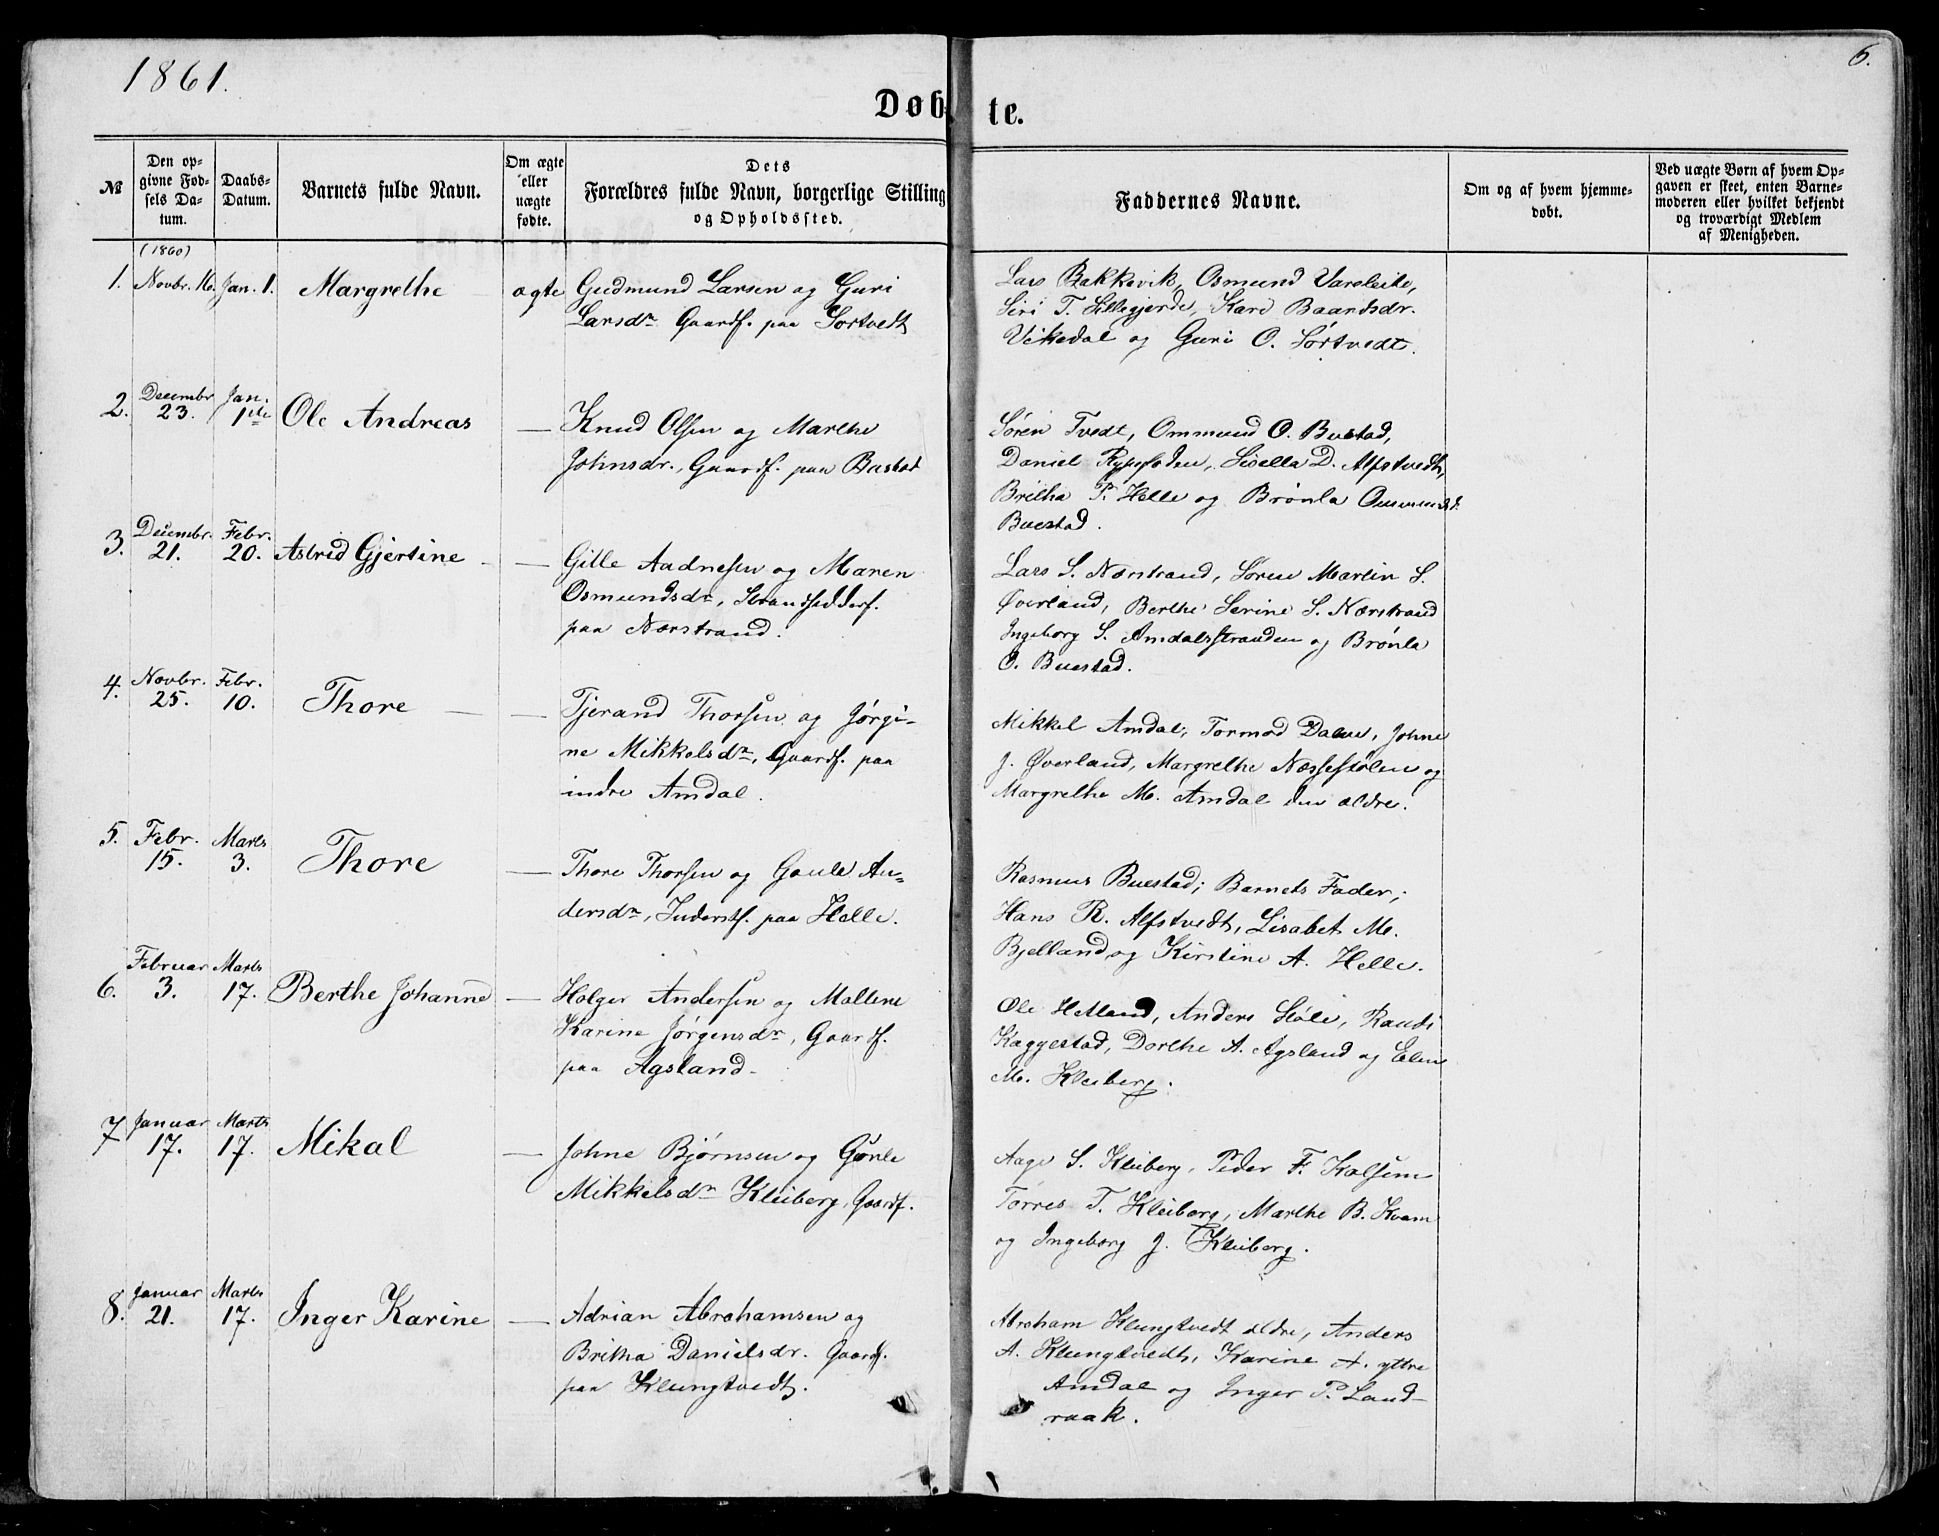 1861.
6.
Døbte.
№
Den op-
givne Fød-
sels Da-
tum.
Daabs-
Datum.
Barnets fulde Navn.
Om ægte
eller
uægte
fødte.
Dets
Forældres fulde Navn, borgerlige Stilling
og Opholdssted.
Faddernes Navne.
Om og af hvem hjemme-
døbt.
Ved uægte Børn af hvem Op-
gaven er skeet, enten Barne-
moderen eller hvilket bekjendt
og troværdigt Medlem
af Menigheden.
(1860)
1. Novbr. 16. Jan. 1. Margrethe ægte Gudmund Larsen og Guri
Larsdr Gaardf. paa Sørtvedt
Lars Bakkevik, Osmund Varsleite,
Siri T. Lillegjerde, Kari Baardsdr.
Vikedal og Guri O. Sørtvedt.
2. Decembr 23. Jan. 1ste Ole Andreas — Knud Olsen og Marthe
Johnsdr., Gaardf. paa Bustad
Søren Tvedt, Ommund O. Buestad,
Daniel, Lisella D. Alfstvedt,
Britha P. Helle og Brønla Ommundsd.
Buestad.
3. Decembr. 21. Febr. 20. Astrid Gjertine — Gille Aadnesen og Maren
Osmundsdr, Strandsidderf.
paa Nærstrand.
Lars S. Nærstrand, Søren Martin S.
Øverland, Berthe Serine S. Nærstrand
Ingeborg S. Amdalsstranden og Brønla
O. Buestad.
4. Novbr. 25. Febr. 10. Thore — Tjerand Thorsen og Jørgi-
ne Mikkelsdr, Gaardf. paa
indre Amdal.
Mikkel Amdal, Tormod Dalve, Johne
J. Øverland, Margrethe Næssestølen og
Margrethe M. Amdal den ældre.
5. Febr. 15. Marts 3. Thore — Thore Thorsen og Gunle An-
dersdr, Inderstf. paa Helle.
Rasmus Buestad; Barnets Fader;
Hans R. Alfstvedt, Lisabet M.
Bjelland og Kirstine A. Helle.
6. Februar 3. Marts 17. Berthe Johanne — Holger Andersen og Mallene
Karine Jørgensdr, Gaardf.
paa Agsland.
Ole Hetland, Anders Støle, Randi
Kaggestad, Dorthe A. Agsland og Elen
M. Kleiberg.
7 Januar 17. Marts 17. Mikal — Johne Bjørnsen og Gunle
Mikkelsdr Kleiberg, Gaardf.
Aage S. Kleiberg, Peder F. Kalsem
Torres T. Kleiberg, Marthe B. Kvam
og Ingeborg J. Kleiberg.
8. Januar 21. Marts 17. Inger Karine — Adrian Abrahamsen og
Britha Danielsdr. Gaardf.
paa Klungtvedt.
Abraham Klungtvedt ældre, Anders
A. Klungtvedt, Karine A. yttre
Amdal og Inger P. Land-
raak.